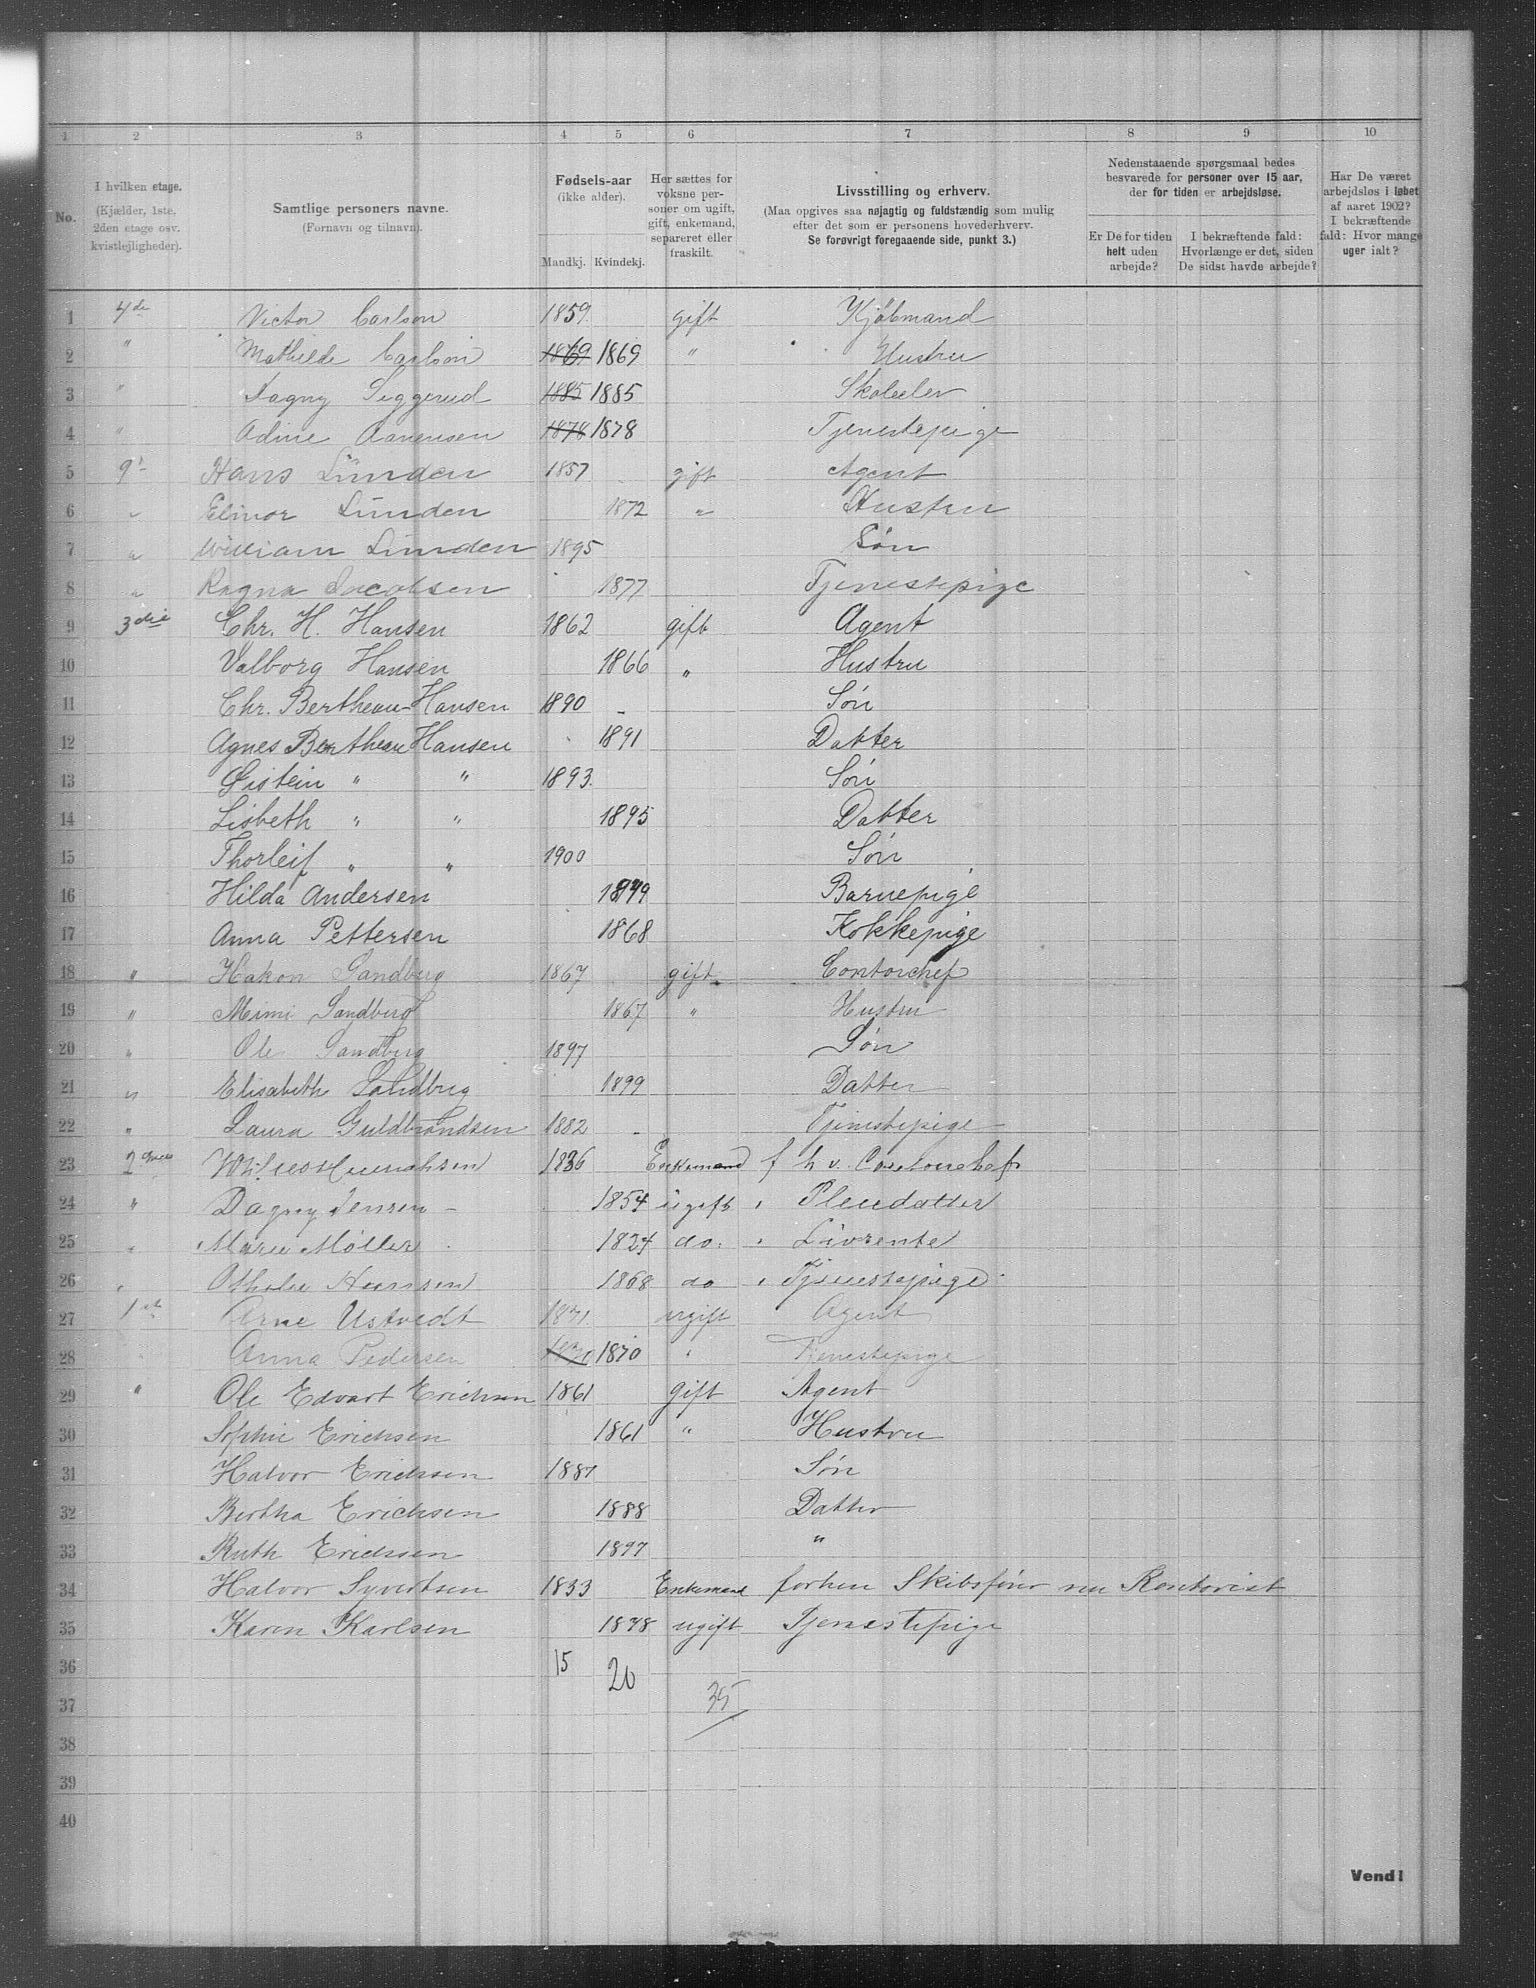 1 2 3 4 5 6 7 8 9 10
No.
I hvilken etage.
(Kjælder, 1ste,
2den etage osv.
kvistlejligheder).
Samtlige personers navne.
(Fornavn og tilnavn).
Fødsels-aar
(ikke alder).
Mandkj. Kvindekj.
Her sættes for
voksne per-
soner om ugift,
gift, enkemand,
separeret eller
fraskilt.
Livsstilling og erhverv.
(Maa opgives saa nøjagtig og fuldstændig som mulig
efter det som er personens hovederhverv.
Se forøvrigt foregaaende side, punkt 3.)
Nedenstaaende spørgsmaal bedes
besvarede for personer over 15 aar,
der for tiden er arbejdsløse.
Er De for tiden
helt uden
arbejde?
I bekræftende fald:
Hvorlænge er det, siden
De sidst havde arbejde?
Har De været
arbejdsløs i løbet
af aaret 1902?
I bekræftende
fald: Hvor mange
uger ialt?
1 4de Victor Carlson 1859. gift Kjøbmand
2 " Mathilde Carlson 1869 1869 " Hustru
3 " Dagny Seggerud 1885 1885 Skoleelev
4 " Adine Aanensen 1878 1878 Tjenestepige
5 Hans Lunden 1857 gift Agent
6 " Elinor Lunden 1872 " Hustru
7 " William Lunden 1895 Søn
8 " Ragna Jacobsen 1877 Tjenestepige
9 3die Chr. H. Hansen 1862 gift Agent
10 Valborg Hansen 1866 " Hustru
11 Chr. Bertheau-Hansen 1890 - Søn
12 Agnes Bertheau Hansen 1891 Datter
13 Øistein " " 1893. Søn
14 Lisbeth " " 1895 Datter
15 Thorleif " " 1900 Søn
16 Hilda Andersen 1879 Barnepige
17 Anna Pettersen 1868 Kokkepige
18 " Hakon Sandberg 1867 gift Contorchef
19 " Mimi Sandberg 1867 " Hustru
20 " Ole Sandberg 1897 Søn
21 " Elisabeth Sandberg 1899 Datter
22 " Laura Guldbrandsen 1882 - Tjenestepige
23 Hinrichsen 1836 Enkemand f h v. Contorchef
24 " Dagny Jensen - 1854 ugift " Pleiedatter
25 " Marie Møller 1824 do. " Livrente
26 " Hansen 1868 do " Tjenestepige
27 1ste Arne Ustvedt 1871. ugift Agent
28 Anna Pedersen 1870 1870 " Tjenestepige
29 " Ole Edvart Erichsen 1861 gift Agent
30 Sophie Erichsen 1861 " Hustru
31 Halvor Erichsen 1887 Søn
32 Bertha Erichsen 1888 Datter
33 Ruth Erichsen 1897 "
34 Halvor Syvertsen 1833 Enkemand forhen Skibsfører nu Kontorist
35 Karen Karlsen 1878 ugift Tjenestepige
36 15 20
37 35
38
39
40
Vend!